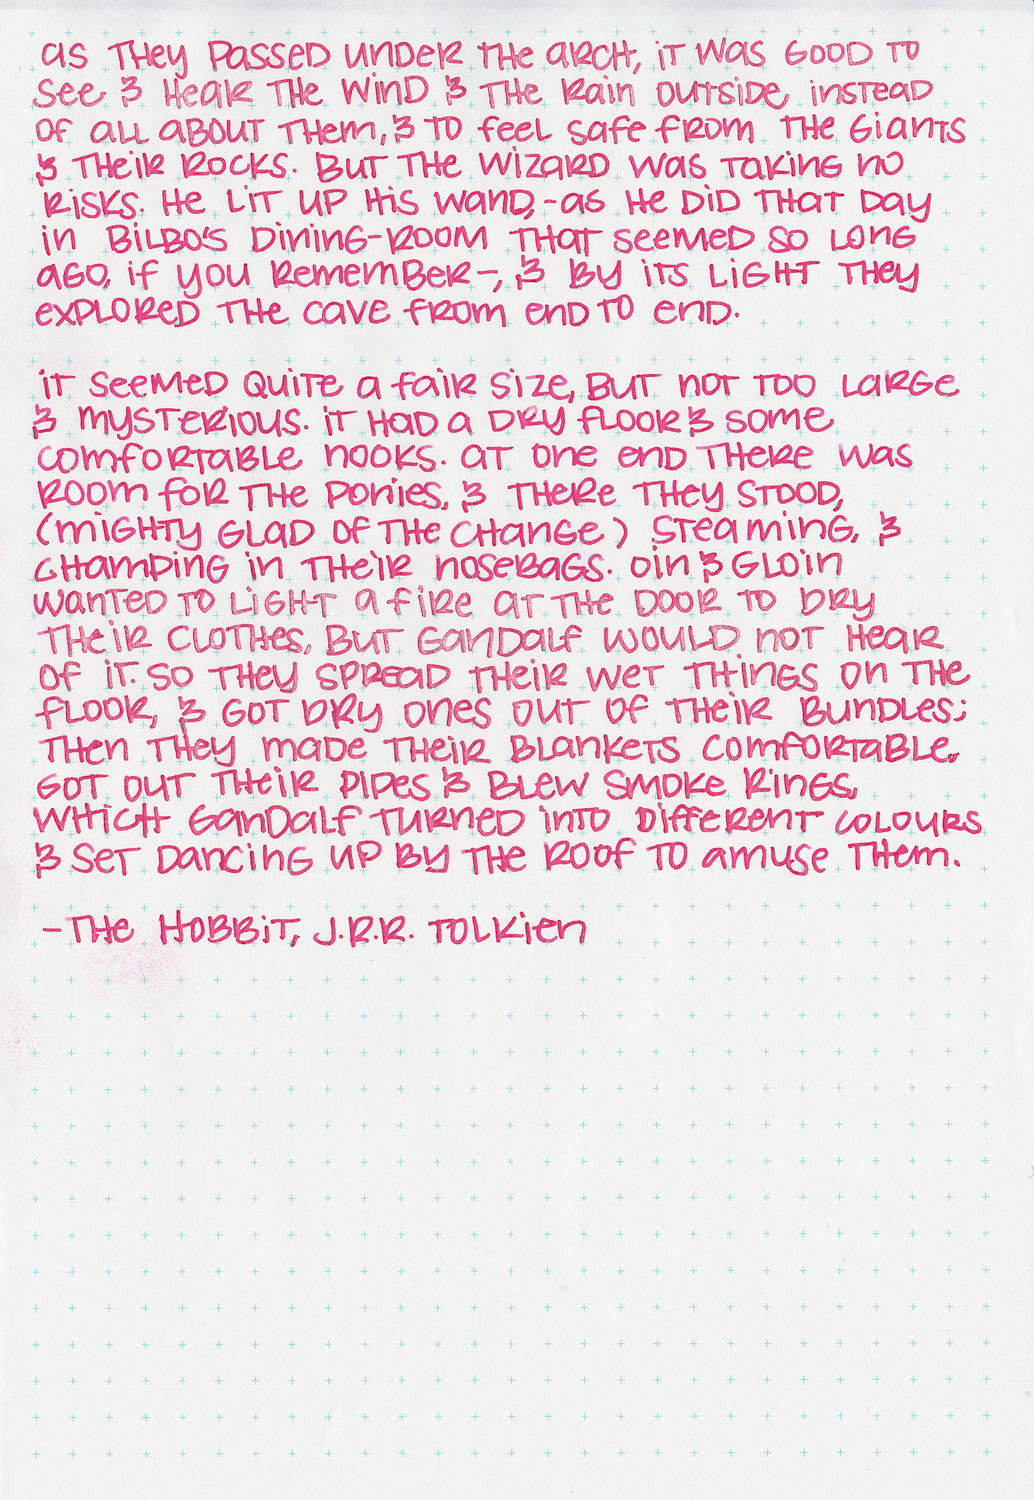 as THey PASSED UNDER THE ARCH, iT WAS GOOD TO
See & HEAR THE WIND & THE RAin OUTSIDE insTEAD
OF ALL ABOUT THem, & TO feeL SAfe fROM THE GiAnTS
& THeiR ROCKS. BUT THE WizARD WAS TAKinG no
RisKS. He LiT UP His WAnD, -as He DiD THAT DAy
in BiLBO'S DininG-ROOM THAT SeemeD SO LOnG
AGO, if you RememBeR-, & By iTS LiGHT THey
exPLORED THE CAVe fROM enD TO enD.

iT SeemeD QUiTe a fAiR Size, BUT noT TOO LARGe
& mySTeRiOUS. iT HAD a DRy fLOOR & some
comfoRTABLe nOOKS. AT One enD THeRe WAS
ROOm foR THe Ponies, & THeRe THey STOOD,
(miGHTy GLAD Of THe CHAnGe) STeaminG, &
CHAmPinG in THeiR noseBAGS. Oin & GLOin
WAnTeD TO LiGHT a fiRe AT THe DOOR TO DRy
THeiR CLOTHes, BUT GAnDALf WOULD noT HeAR
Of iT. SO THey SPREAD THeiR WeT THinGS On THe
fLOOR, & GOT DRy Ones OUT Of THeiR BUnDLes;
THen THey mADe THeiR BLAnKeTS comfORTABLe.
GOT OUT THeiR PiPes & BLeW SmOKe RinGS,
WHiCH GAnDALf TURneD inTO DiffeRenT COLOURS
& SeT DAncinG UP By THe ROOf TO AmUSe THem.

-THe HOBBiT, J.R.R. TOLKien